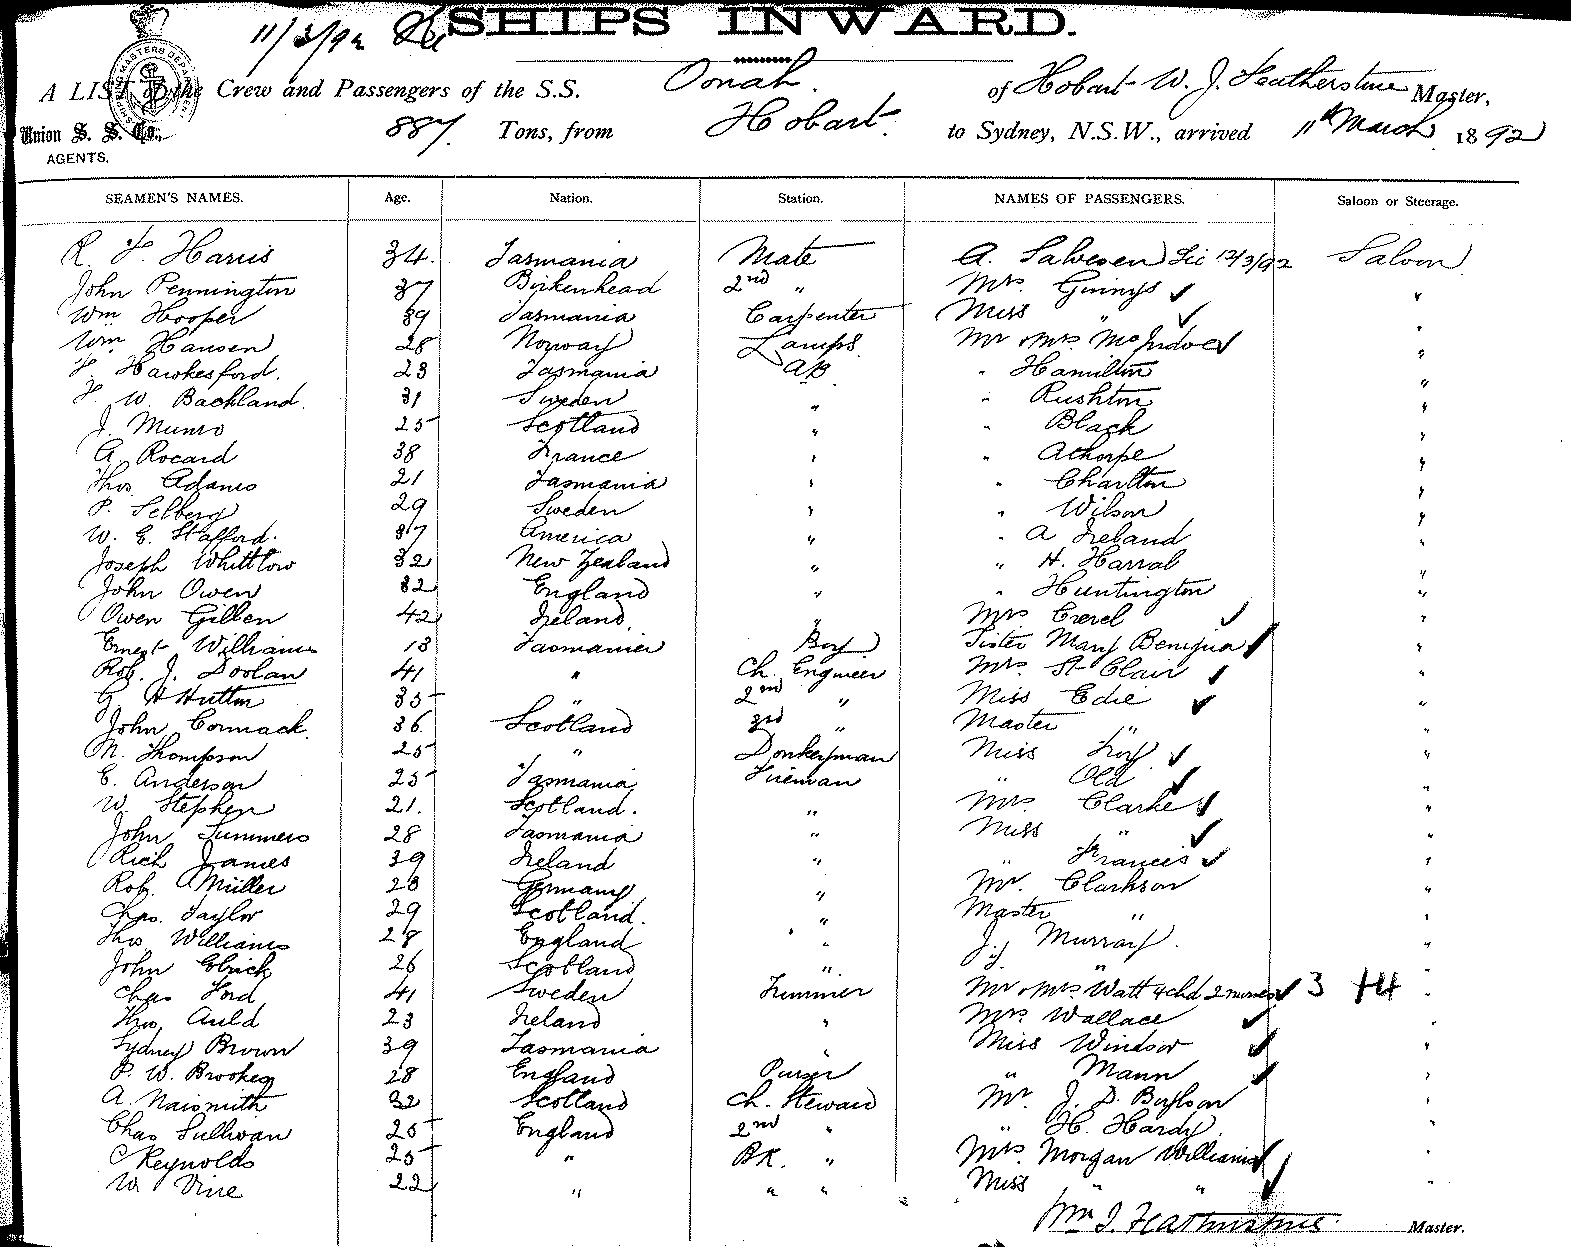 11/3/92
SHIPS INWARD.
A LIST of the Crew and Passengers of the S.S. Oonah of Hobart W. J. Featherstone Master,
Union S. S. Co., 887 Tons, from Hobart to Sydney, N.S.W., arrived 11th March 1892
AGENTS.
SEAMEN'S NAMES. Age. Nation. Station. NAMES OF PASSENGERS. Saloon or Steerage.
R. F. Harris 34 Tasmania Mate A. Salvesen 12/3/92 Saloon
John Pennington 37 Birkenhead 2nd " Mrs. Guinys "
Wm Hooper 39 Tasmania Carpenter Miss " "
Wm. Hansen 28 Norway Lamps Mr & Mrs "
F. Hawkesford. 23 Tasmania AB " Hamilton "
F. W. Backland. 31 Sweden " " Rushton "
J. Munro 25 Scotland " " Black "
A. Rocard 38 France " " Athorpe "
Thos Adams 21 Tasmania " " Charlton "
P. Selberg 29 Sweden " " Wilson "
W. E. Stafford. 37 America " " A Ireland "
Joseph Whittlow 32 New Zealand " " H. Harral "
John Owen 32 England " " Huntington "
Owen Gillen 42 Ireland " Mrs "
Ernest Williams 18 Tasmania Boy Sister Mary Benigna "
Rob. J. Doolan 41 " Ch. Engineer Mrs. St Clair "
G H Hutton 35 " 2nd " Miss Edie "
John Cormack. 36 Scotland 3rd " Master " "
M. Thompson 25 " Donkeyman Miss "
E. Anderson 25 Tasmania Fireman " Old "
W. Stephen 21. Scotland. " Mrs. Clarke "
John Summers 28 Tasmania " Miss " "
Rich James 39 Ireland " " Francis "
Rob. Müller 28 Germany " Mr. Clarkson "
Chas. Taylor 29 Scotland. " Master " "
Thos Williams 28 England " J. Murray. "
John 26 Scotland " "
Chas Ford 41 Sweden Trimmer Mr & Mrs Watt 4 chd 2 nurses 3 +4 "
Thos. Auld 23 Ireland " Mrs. Wallace "
Sydney Brown 39 Tasmania " Miss Windsor "
P. W. Brookes 28 England Purser " Mann "
A. Naismith 32 Scotland Ch. Steward Mr. J. P. Boylson "
Chas Sullivan 25 England 2nd " " H. Hardy. "
C Reynolds 25 " BK. " Mrs. Morgan Williams "
W. Vine 22 " " " Miss " " "
Wm J. Featherstone Master.